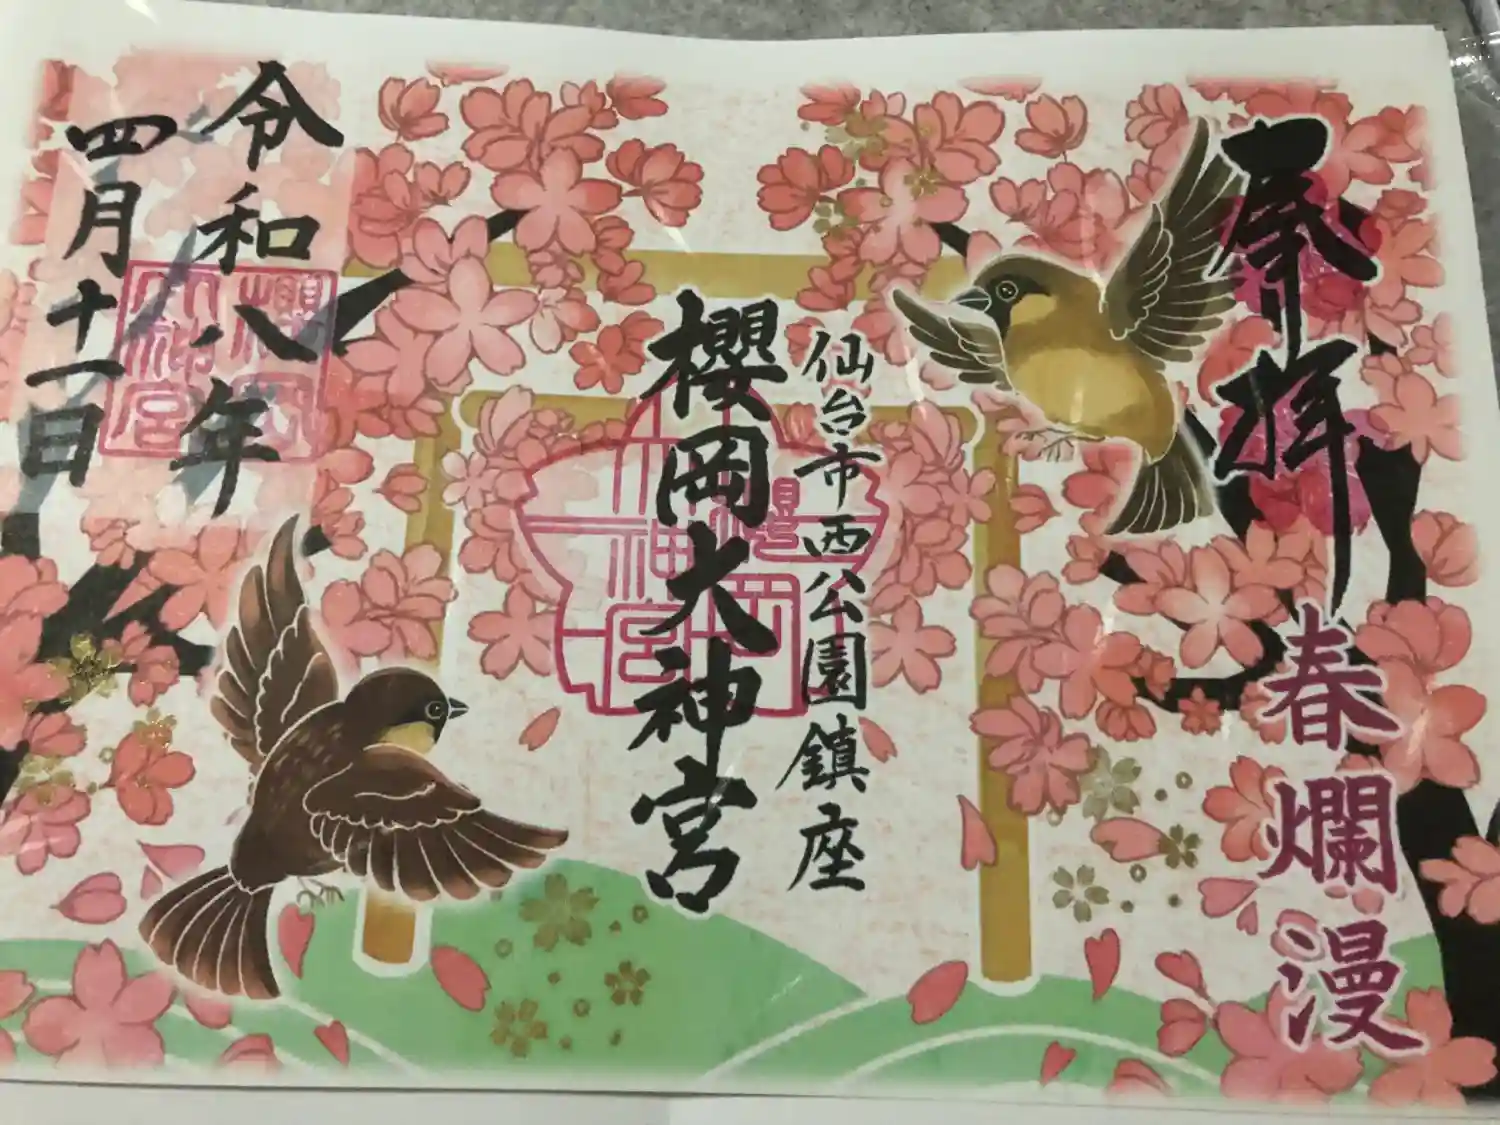 奉拝
春爛漫
仙台市西公園鎮座
櫻岡大神宮
櫻岡
大神宮
令和八年
四月十一日
櫻岡
大神宮